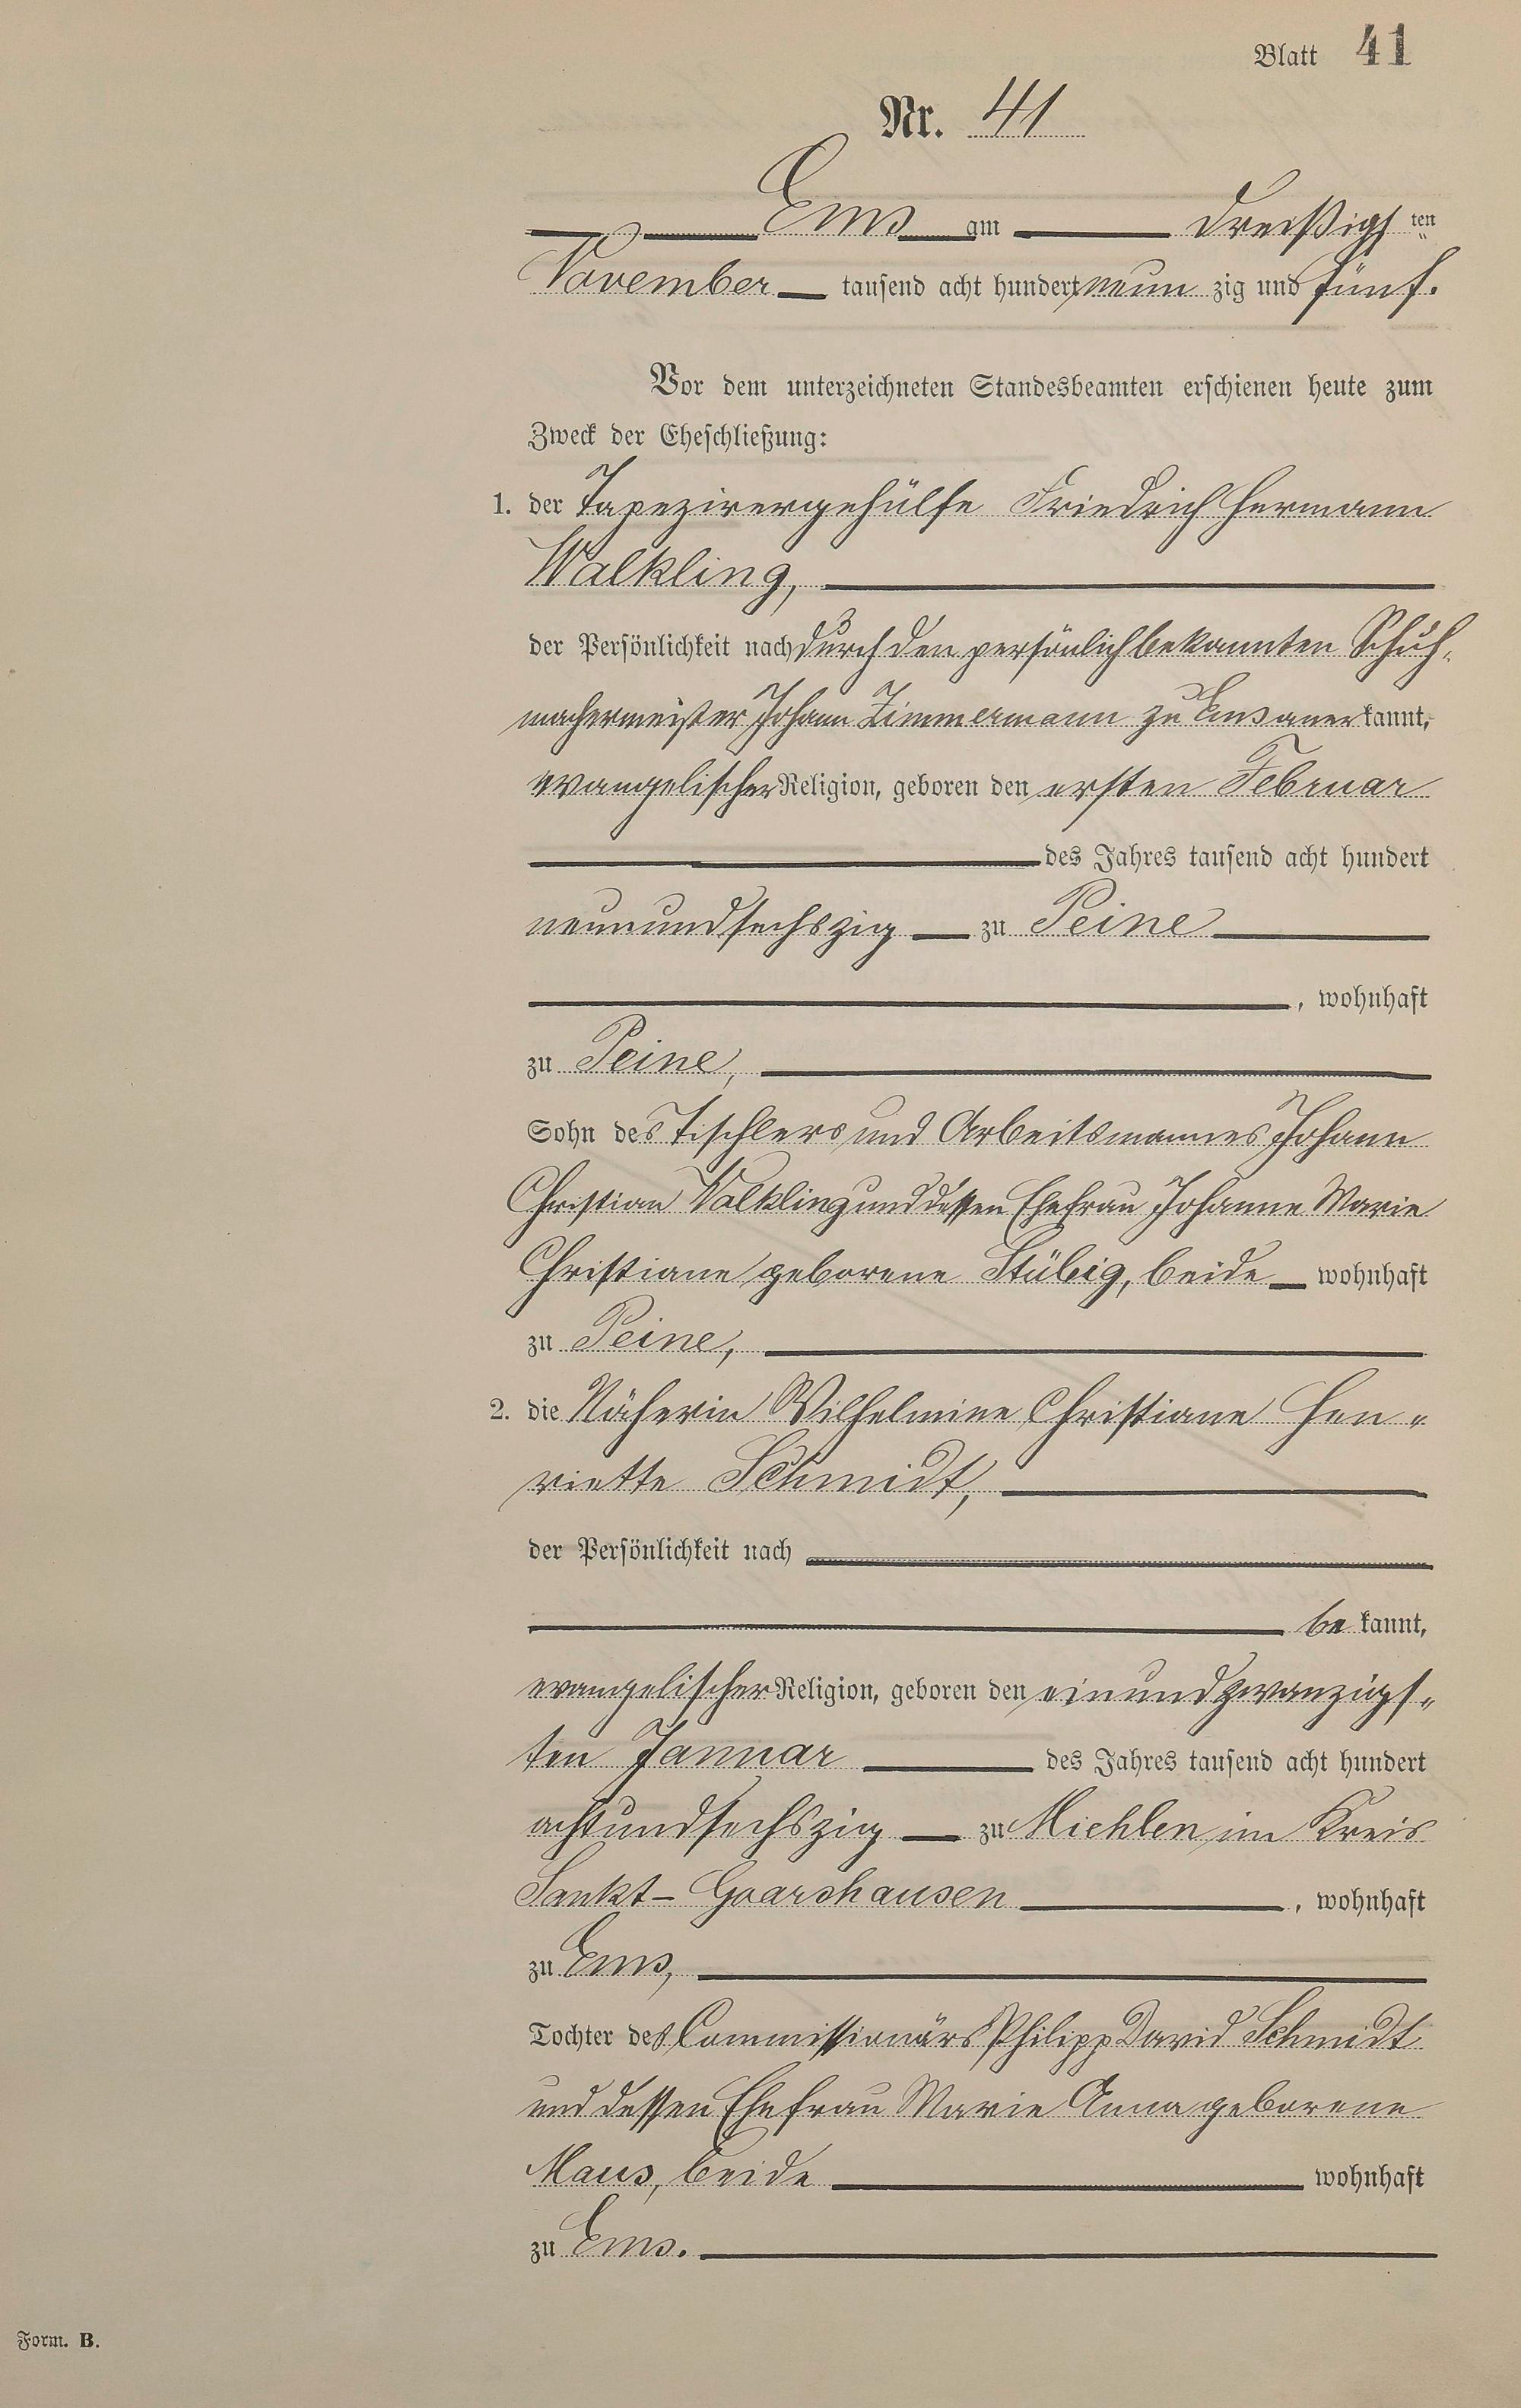 Blatt 41
Nr. 41
Ems am dreißigsten
November tausend acht hundert neunzig und fünf.
Vor dem unterzeichneten Standesbeamten erschienen heute zum
Zweck der Eheschließung:
1. der Tapezirergehülfe Friedrich Hermann
Walkling,
der Persönlichkeit nach durch den persönlich bekannten Schuh-
machermeister Johann Zimmermann zu Ems anerkannt,
evangelischer Religion, geboren den ersten Februar
des Jahres tausend acht hundert
neunundsechszig zu Peine
, wohnhaft
zu Peine,
Sohn des Tischlers und Arbeitsmannes Johann
Christian Walkling und dessen Ehefrau Johanne Marie
Christiane geborene Stübig, beide wohnhaft
zu Peine,
2. die Näherin Wilhelmine Christiane Hen-
riette Schmidt,
der Persönlichkeit nach
bekannt,
evangelischer Religion, geboren den einundzwanzigs-
ten Januar des Jahres tausend acht hundert
achtundsechszig zu Miehlen im Kreis
Sankt-Goarshausen, wohnhaft
zu Ems,
Tochter des Commissionärs Philipp David Schmidt
und dessen Ehefrau Marie Anna geborene
Maus, beide wohnhaft
zu Ems.
Form. B.